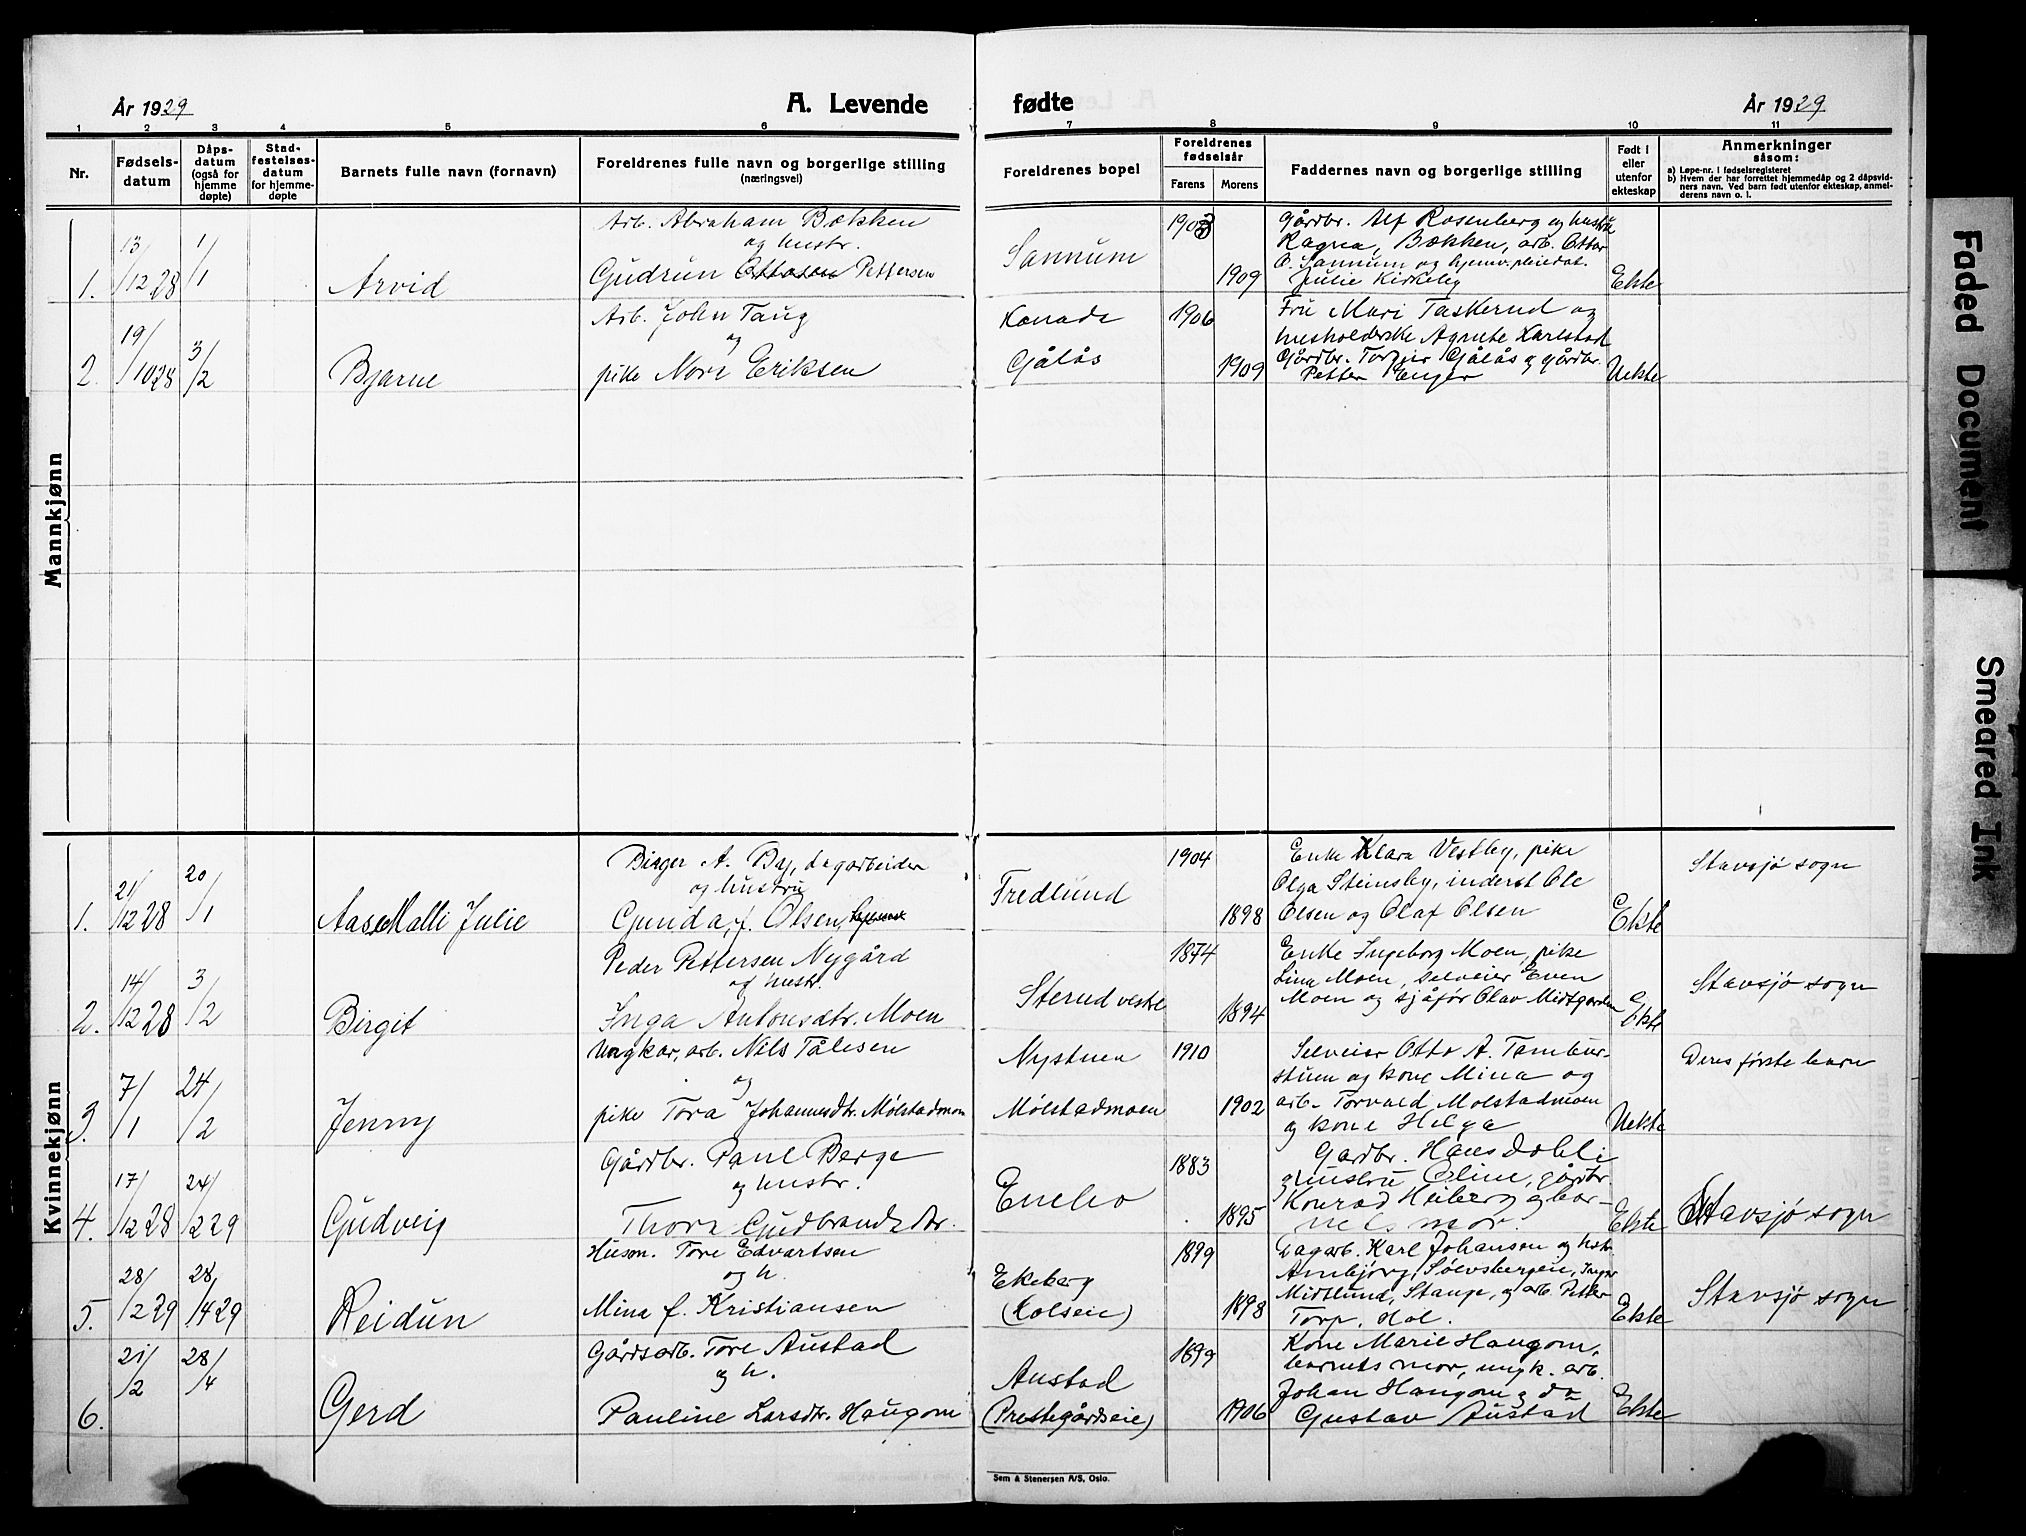 År 1929
A. Levende
fødte
År 1929
1 2 3 4 5 6 7 8 9 10 11
Nr.
Fødsels-
datum
Dåps-
datum
(også for
hjemme
døpte)
Stad-
festelses-
datum
for hjemme-
døpte
Barnets fulle navn (fornavn)
Foreldrenes fulle navn og borgerlige stilling
(næringsvei)
Foreldrenes bopel
Foreldrenes
fødselsår
Farens
Morens
Faddernes navn og borgerlige stilling
Født i
eller
utenfor
ekteskap
Anmerkninger
såsom:
a) Løpe-nr. i fødselsregisteret
b) Hvem der har forrettet hjemmedåp og 2 dåpsvid-
ners navn. Ved barn født utenfor ekteskap, anmel-
derens navn o. l.
Mannkjønn
1.
13/12 28
1/1
Arvid
Arb. Abraham Bækken
og hustr.
Gudrun Pettersen
Sannum
1903
1909
Gårdbr. Alf Rosenberg og hustru
Ragna, Bækken, arb. Ottar
O. Sannum og
Julie Kirkelig
Ekte
2.
19/10 28
3/2
Bjarne
Arb. John Taug
og
pike Nora Eriksen
Gålås
1906
1909
Fru Mari Taskerud og
husholderske Agnete Karlstad
Gårdbr. Gålås og gårdbr.
Petter Enger
Uekte
Kvinnekjønn
1.
21/12 28
20/1
Aase Malli Julie
Birger A. By, dagarbeider
og hustru
Gunda, f. Olsen
Fredlund
1904
1898
Enke Klara Vestby, pike
Olga Steinsby, inderst Ole
Olsen og Olaf Olsen
Ekte
Stavsjø sogn
2.
14/12 28
3/2
Birgit
Peder Pettersen Nygård
og hustr.
Inga Antonsdtr. Moen
Sterud vestre
1874
1894
Enke Ingeborg Moen, pike
Lina Moen, selveier Even
Moen og sjåfør Olav Midtgarden
Ekte
Stavsjø sogn
3.
7/1
24/2
Jenny
Ungkar, arb. Nils Tålesen
og
pike Tora Johannesdtr. Mølstadmoen
Nystuen
Mølstadmoen
1910
1902
Selveier Otto A. Tambur-
stuen og kone Mina og
arb. Torvald Molstadmoen
og kone Helga
Uekte
Deres første barn
4.
17/12 28
24/2 29
Gudveig
Gårdbr. Paul Berge
og hustr.
Thora Gudbrandsdtr.
Enebo
1883
1895
Gardbr. Hans Dahli
og hustru Oline, gårdbr.
Konrad Heiberg og bar-
nets mor.
Ekte
Stavsjø sogn
5.
28/2 29
28/4 29
Reidun
Husm. Tore Edvartsen
og h.
Mina f. Kristiansen
Ekeberg
(Kolseie)
1899
1898
Dagarb. Karl Johansen og hstr.
Annbjørg, Sølvsbergeie, Inger
Midtlund, Stange, og arb. Petter
Torp, Hol.
Ekte
Stavsjø sogn
6.
21/2
28/4
Gerd
Gårdsarb. Tore Austad
og h.
Pauline Larsdtr. Haugom
Austad
(Prestegårdseie)
1899
1906
Kone Marie Haugom,
barnets mor, ungk. arb.
Johan Haugom og do
Gustav Austad
Ekte
Sem & Stenersen A/S, Oslo.
Faded Document
Smeared Ink